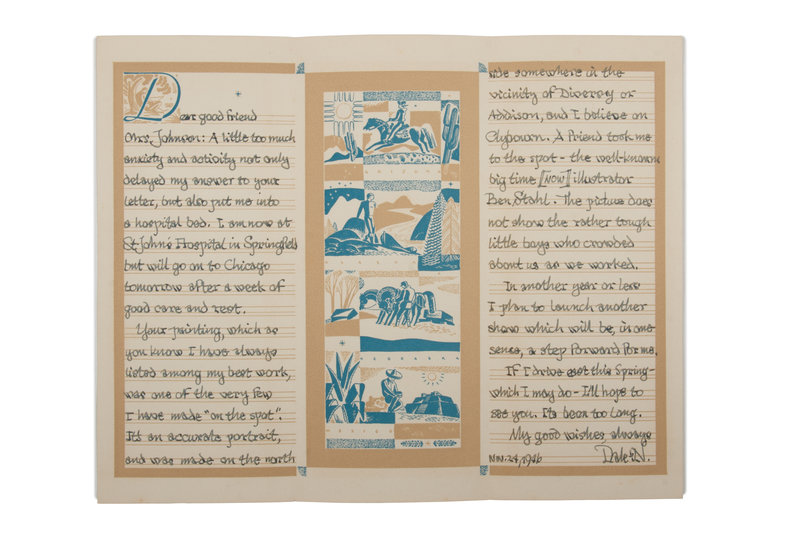 Dear good friend
Mrs. Johnson: A little too much
anxiety and activity not only
delayed my answer to your
letter, but also put me into
a hospital bed. I am now at
St. John's Hospital in Springfield
but will go on to Chicago
tomorrow after a week of
good care and rest.
Your painting, which as
you know I have always
listed among my best work,
was one of the very few
I have made "on the spot".
It's an accurate portrait,
and was made on the north
ARIZONA
IDAHO
NEBRASKA
MEXICO
side somewhere in the
vicinity of Diversey or
Addison, and I believe on
Clybourn. A friend took me
to the spot - the well-known
big time [NOW] illustrator
Ben Stahl. The picture does
not show the rather tough
little boys who crowded
about us as we worked.
In another year or less
I plan to launch another
show which will be, in one
sense, a step forward for me.
If I drive east this Spring-
which I may do - I'll hope to
see you. It's been too long.
My good wishes, always
Nov. 24, 1946 Dale N.